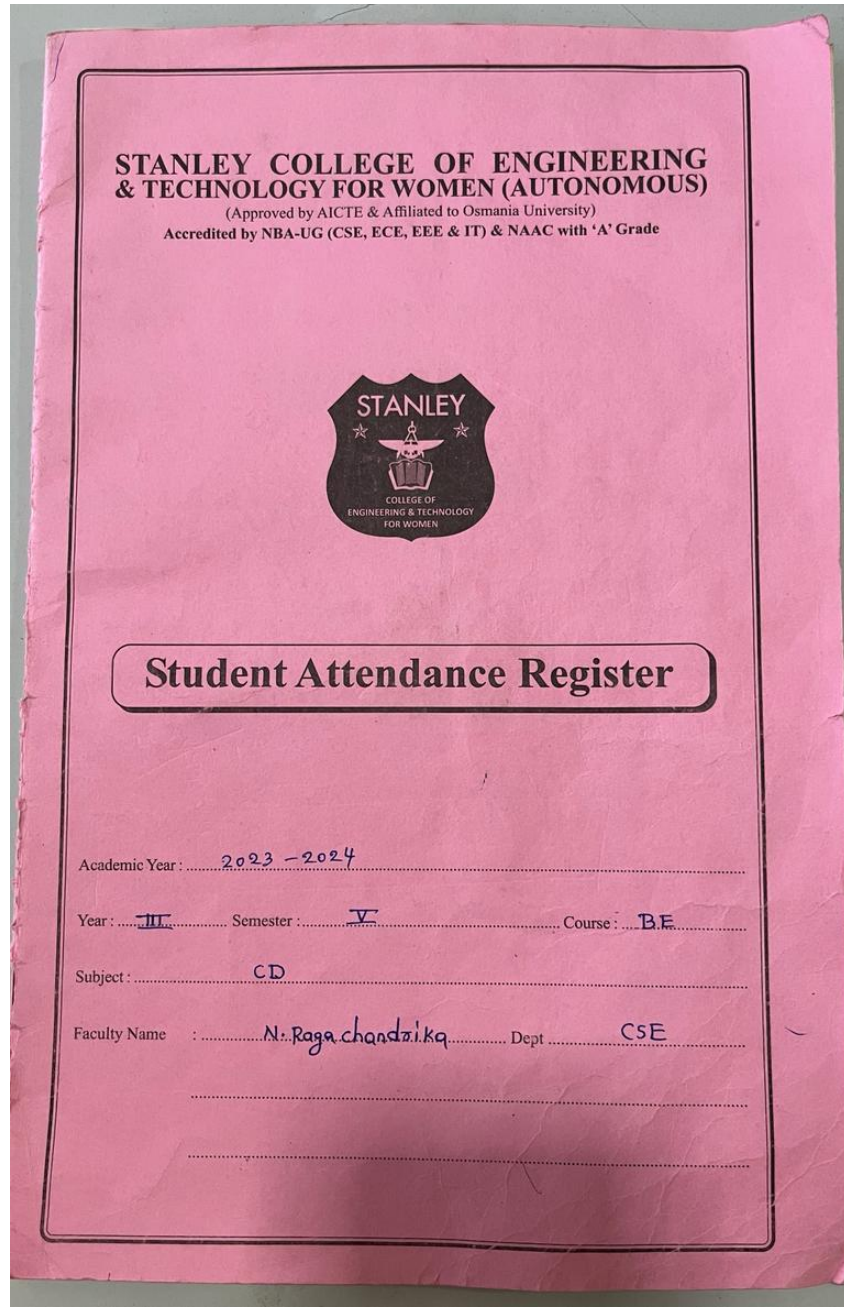 STANLEY COLLEGE OF ENGINEERING
& TECHNOLOGY FOR WOMEN (AUTONOMOUS)
(Approved by AICTE & Affiliated to Osmania University)
Accredited by NBA-UG (CSE, ECE, EEE & IT) & NAAC with ‘A’ Grade
STANLEY
COLLEGE OF
ENGINEERING & TECHNOLOGY
FOR WOMEN
Student Attendance Register
Academic Year : 2023 - 2024
Year : III Semester : V Course : BE
Subject : CD
Faculty Name : N. Raga chandrika Dept CSE